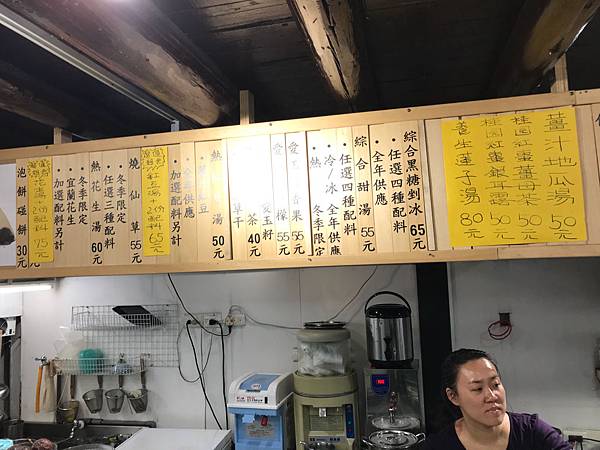 綜合黑糖剉冰 65元
•任選四種配料
•全年供應
綜合甜湯 55元
•任選四種配料
•冷/冰 全年供應
•熱 冬季限定
55元
檬 55元
愛玉籽
茶 40元
草干
熱
湯 50元
豆
•全年供應
•加選配料另計
紅豆湯+2份配料
65元
燒仙草 55元
•冬季限定
•任選三種配料
熱花生湯 60元
•冬季限定
•宜蘭花生
•加選配料另計
花湯+2份配料
75元
泡餅碰餅 30元
薑汁地瓜湯 50元
桂圓紅棗薑母茶 50元
桂圓紅棗銀耳湯 50元
養生蓮子湯 80元